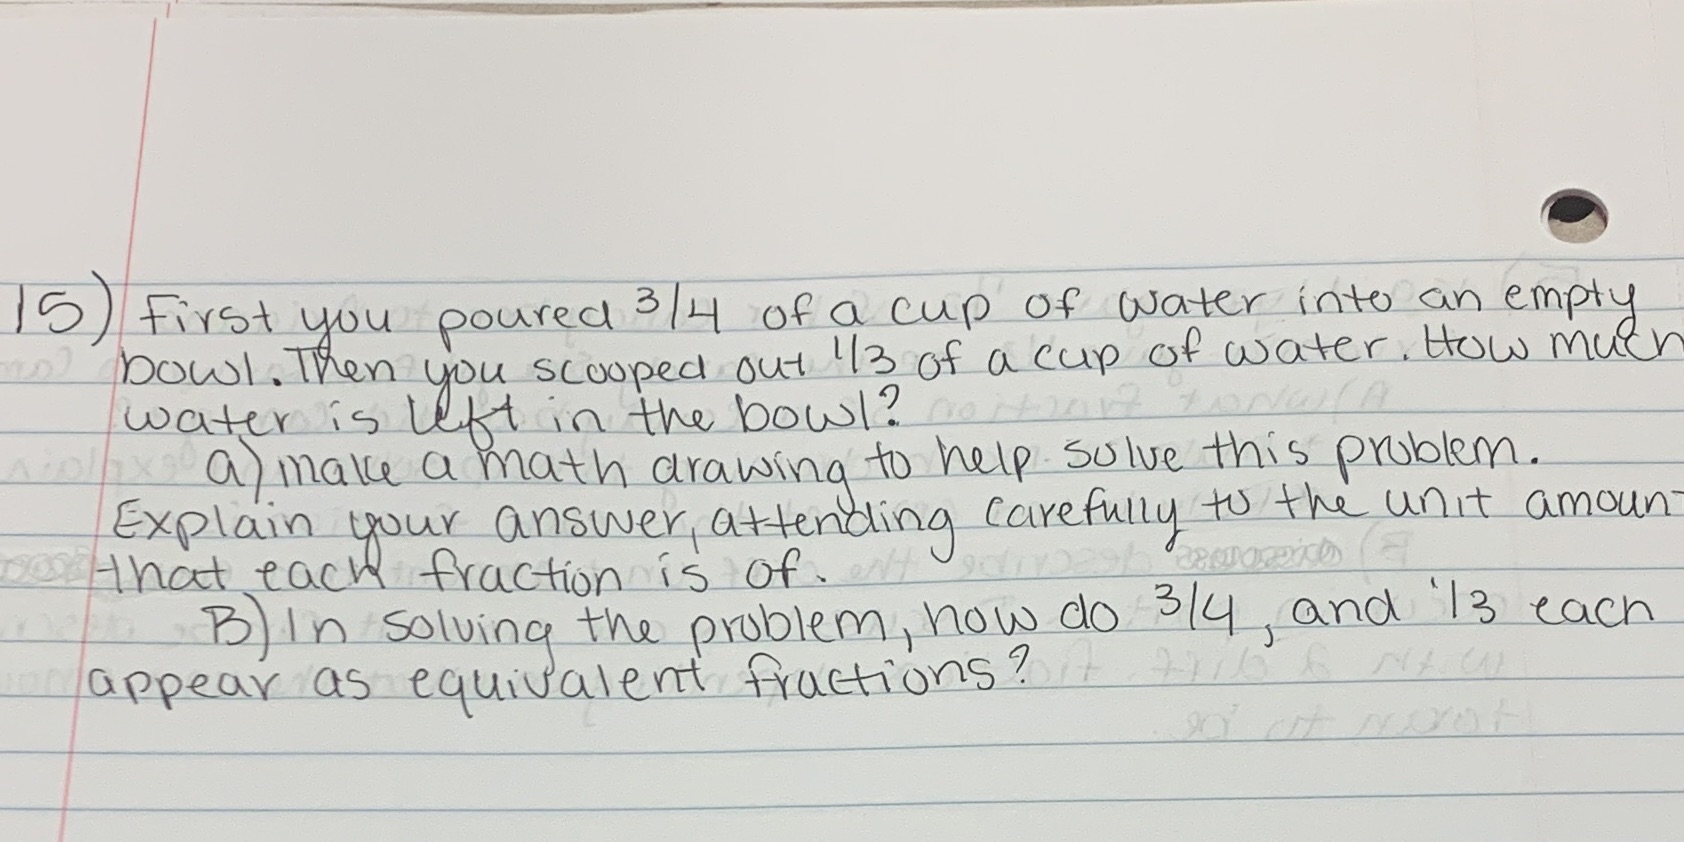 15) First you poured 3/4 of a cup of water into an empty
bowl. Then you scooped out 1/3 of a cup of water. How much
water is left in the bowl?
a) make a math drawing to help solve this problem.
Explain your answer, attending carefully to the unit amoun
that each fraction is of.
B) In solving the problem, how do 3/4, and 1/3 each
appear as equivalent fractions?